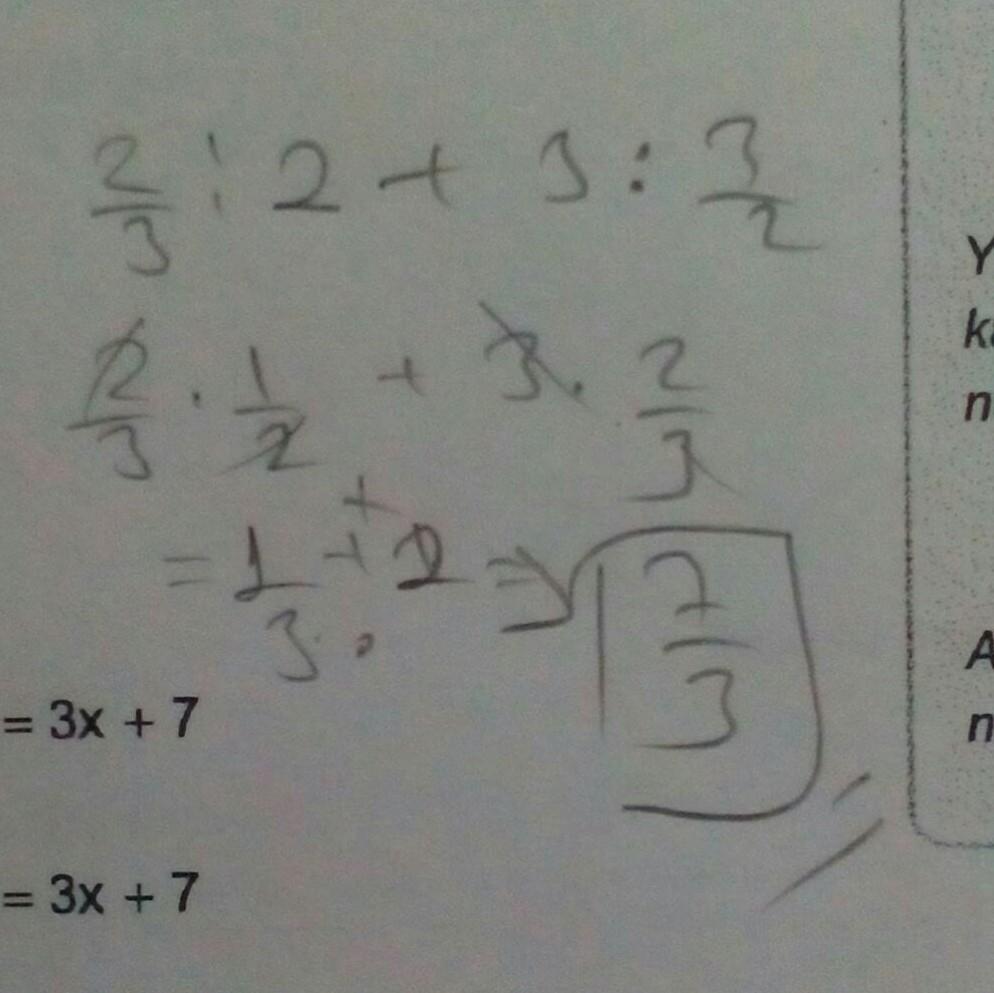 2/3 : 2 + 3 : 3/2
2/3 . 1/2 + 3 . 2/3
+
= 1/3 + 2 ⇒ 7/3
= 3x + 7
= 3x + 7
Y
k
n
A
n